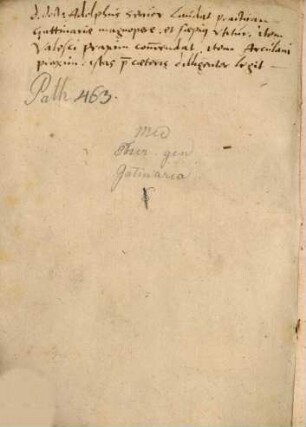 D. doctor Adolphus senior laudat practicam
Gattinariæ magnopere, et sæpius utitur, item
Valesci praxim commendat, item Arculani
praxim. istas p̄ cæteris diligenter legit.
Path 463.
Med
Ther. gen
Gatinaria